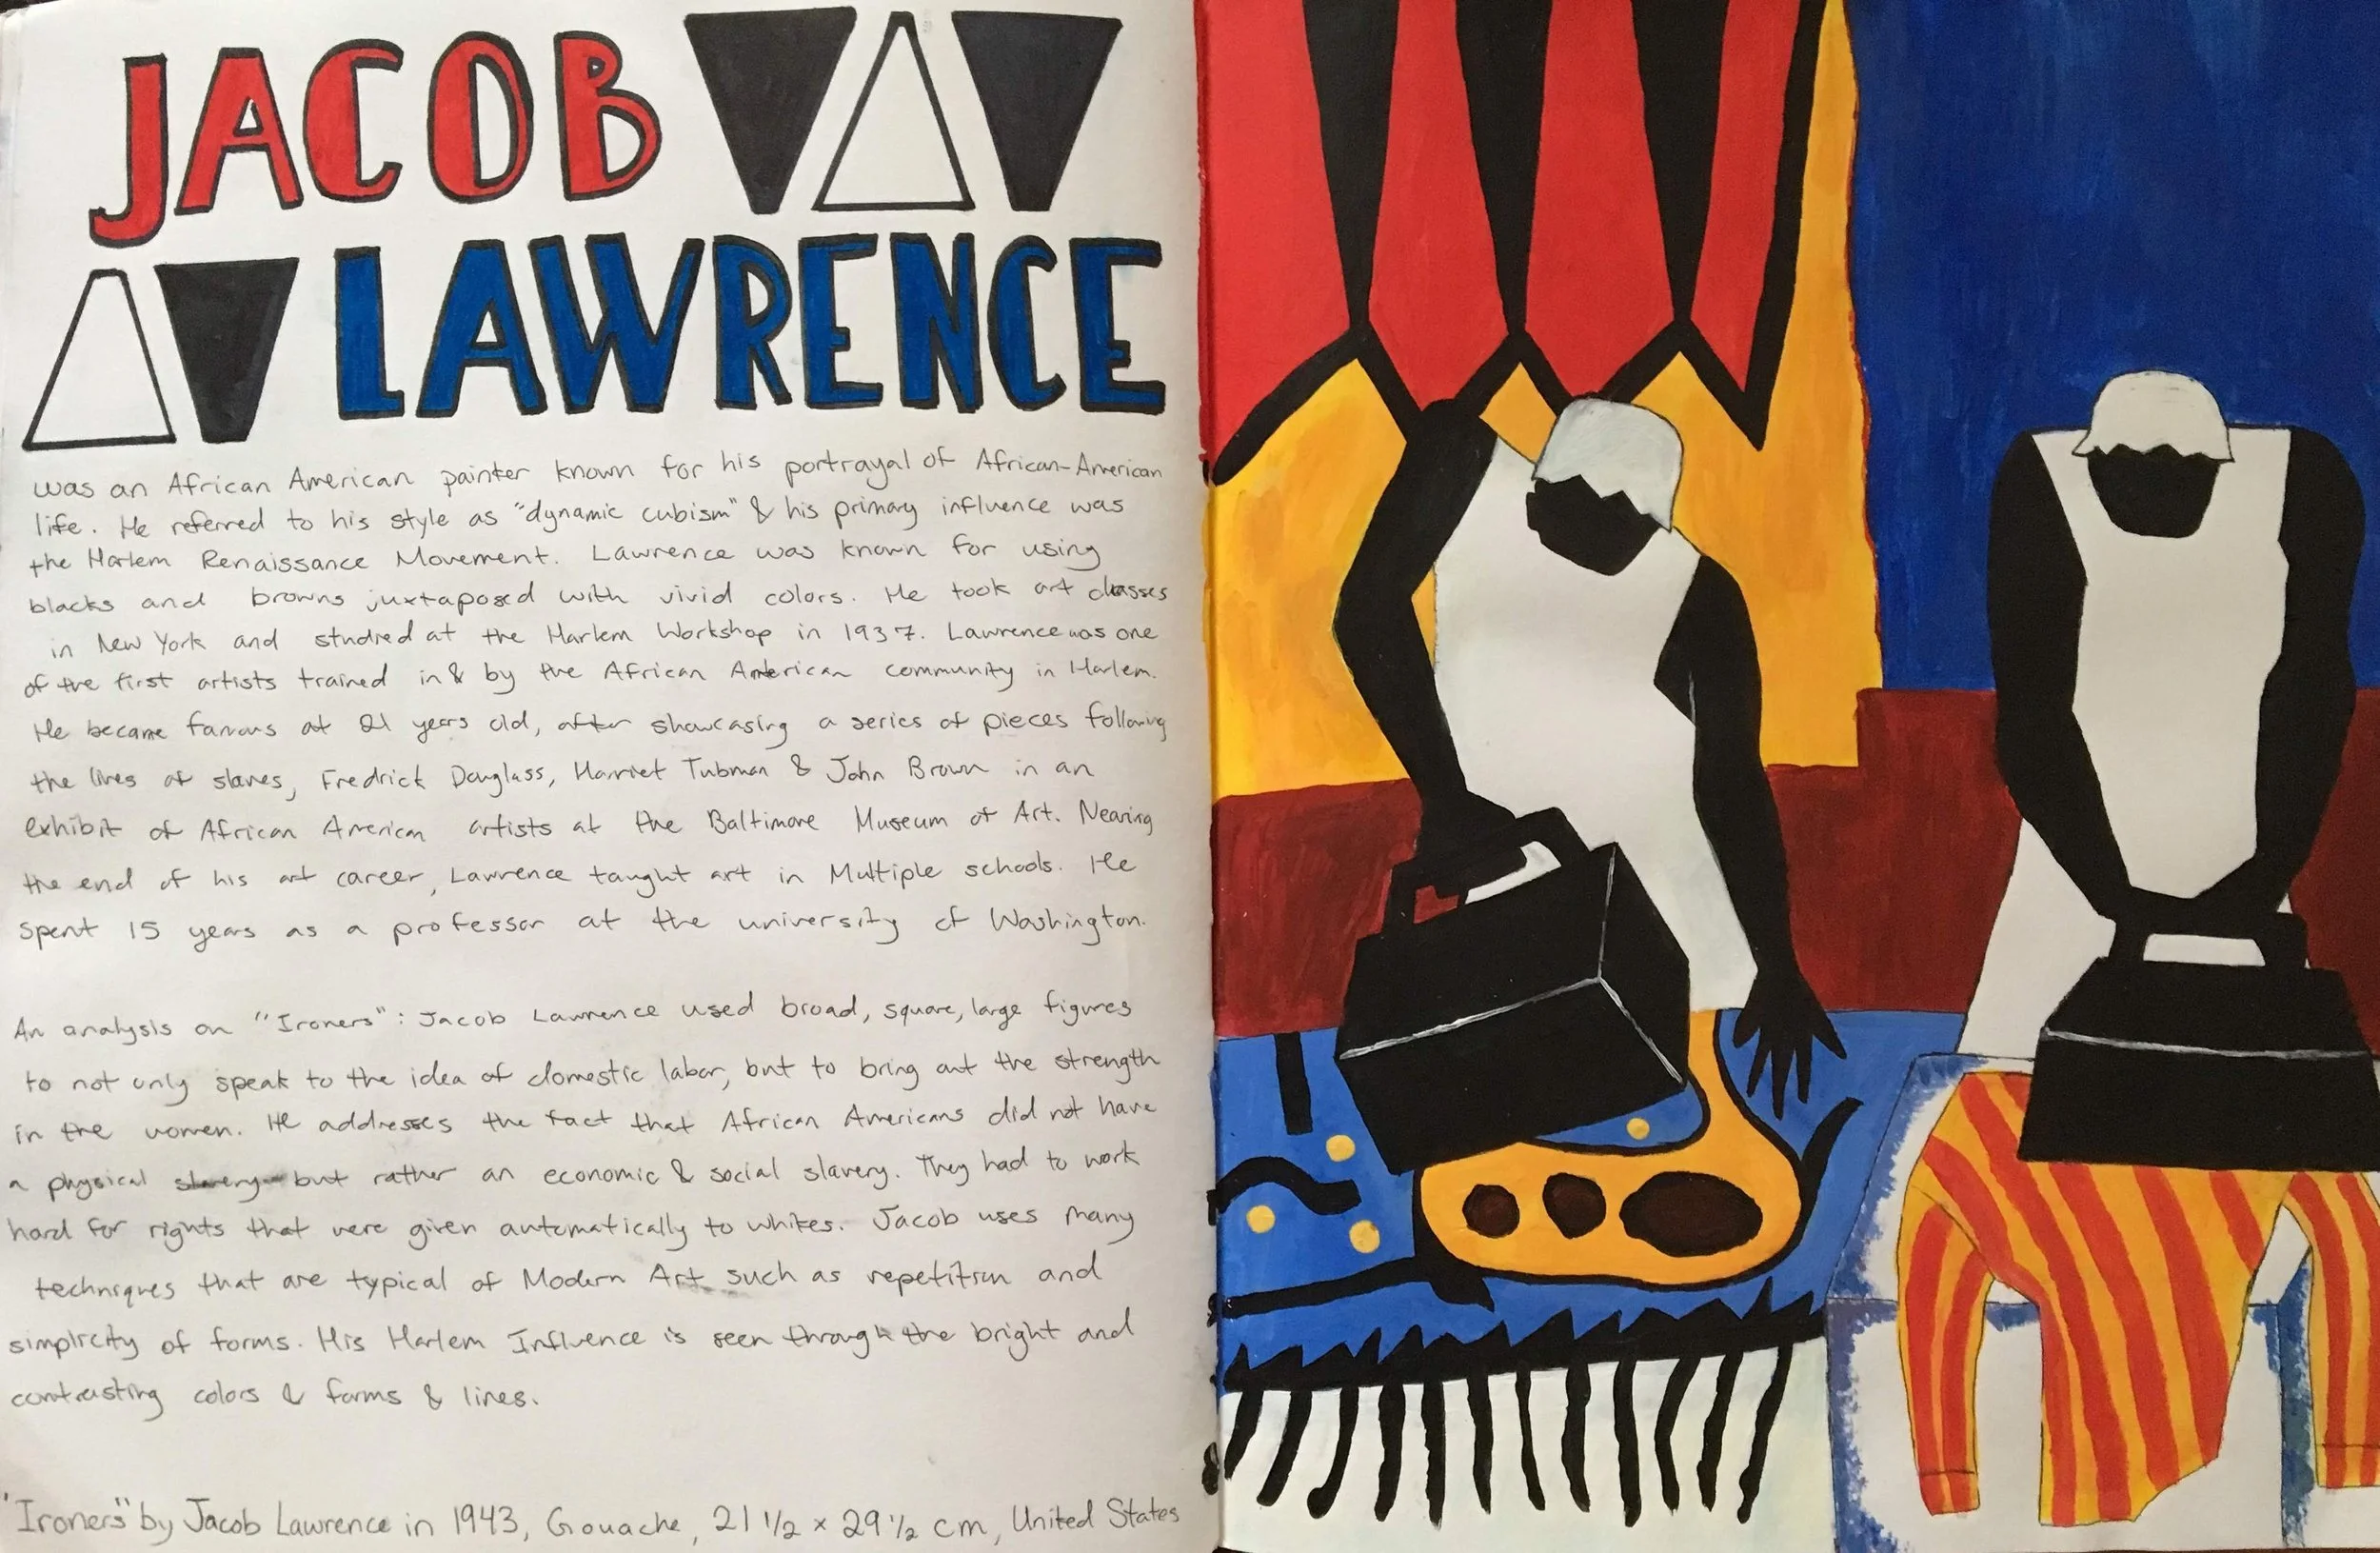 JACOB
LAWRENCE
was an African American painter known for his portrayal of African-American
life. He referred to his style as "dynamic cubism" & his primary influence was
the Harlem Renaissance Movement. Lawrence was known for using
blacks and browns juxtaposed with vivid colors. He took art classes
in New York and studied at the Harlem Workshop in 1937. Lawrence was one
of the first artists trained in & by the African American community in Harlem.
He became famous at 21 years old, after showcasing a series of pieces following
the lives of slaves, Fredrick Douglass, Harriet Tubman & John Brown in an
exhibit of African American artists at the Baltimore Museum of Art. Nearing
the end of his art career, Lawrence taught art in Multiple schools. He
spent 15 years as a professor at the university of Washington.
An analysis on "Ironers": Jacob Lawrence used broad, square, large figures
to not only speak to the idea of domestic labor, but to bring out the strength
in the women. He addresses the fact that African Americans did not have
a physical slavery but rather an economic & social slavery. They had to work
hard for rights that were given automatically to whites. Jacob uses many
techniques that are typical of Modern Art such as repetition and
simplicity of forms. His Harlem Influence is seen through the bright and
contrasting colors & forms & lines.
"Ironers" by Jacob Lawrence in 1943, Gouache, 21 1/2 x 29 1/2 cm, United States